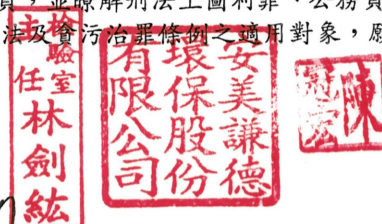 員,並瞭解刑法上圖利罪、公務員
法及貪污治罪條例之適用對象,愿
檢驗室
主任
林劍紘
安美謙德
環保股份
有限公司
陳